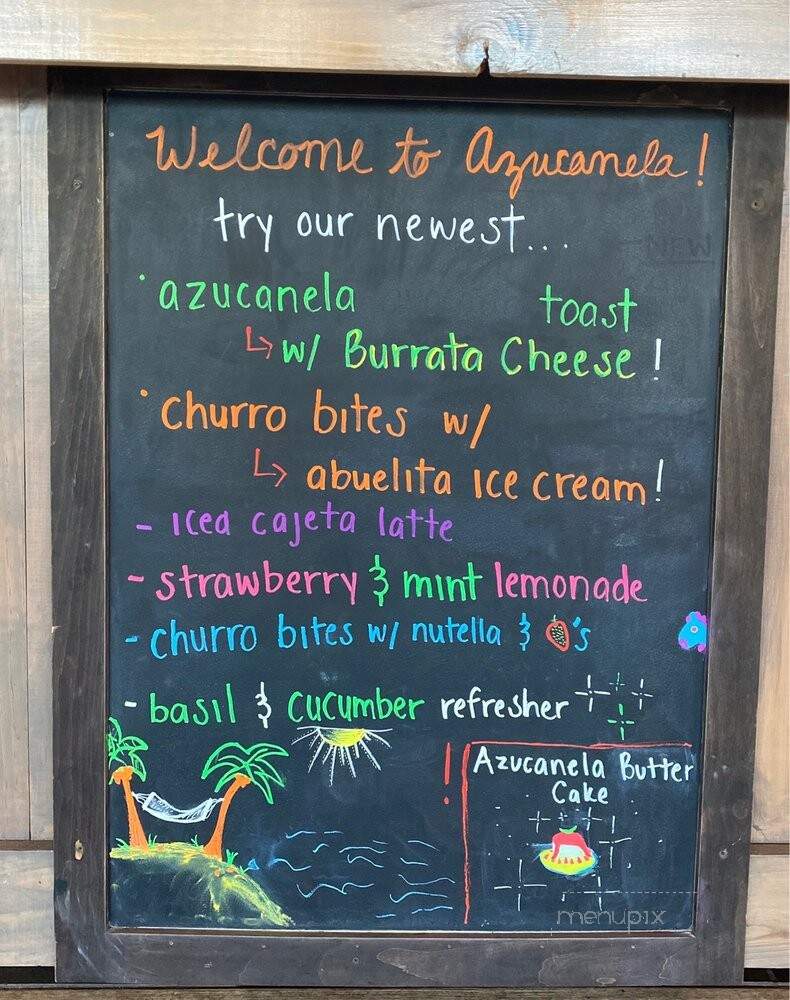 Welcome to Azucanela!
try our newest...
NEW
• azucanela toast
↳ w/ Burrata Cheese!
• churro bites w/
↳ abuelita ice cream!
- iced cajeta latte
- strawberry & mint lemonade
- churro bites w/ nutella & 🍓's
- basil & cucumber refresher
!
Azucanela Butter
Cake
menupix